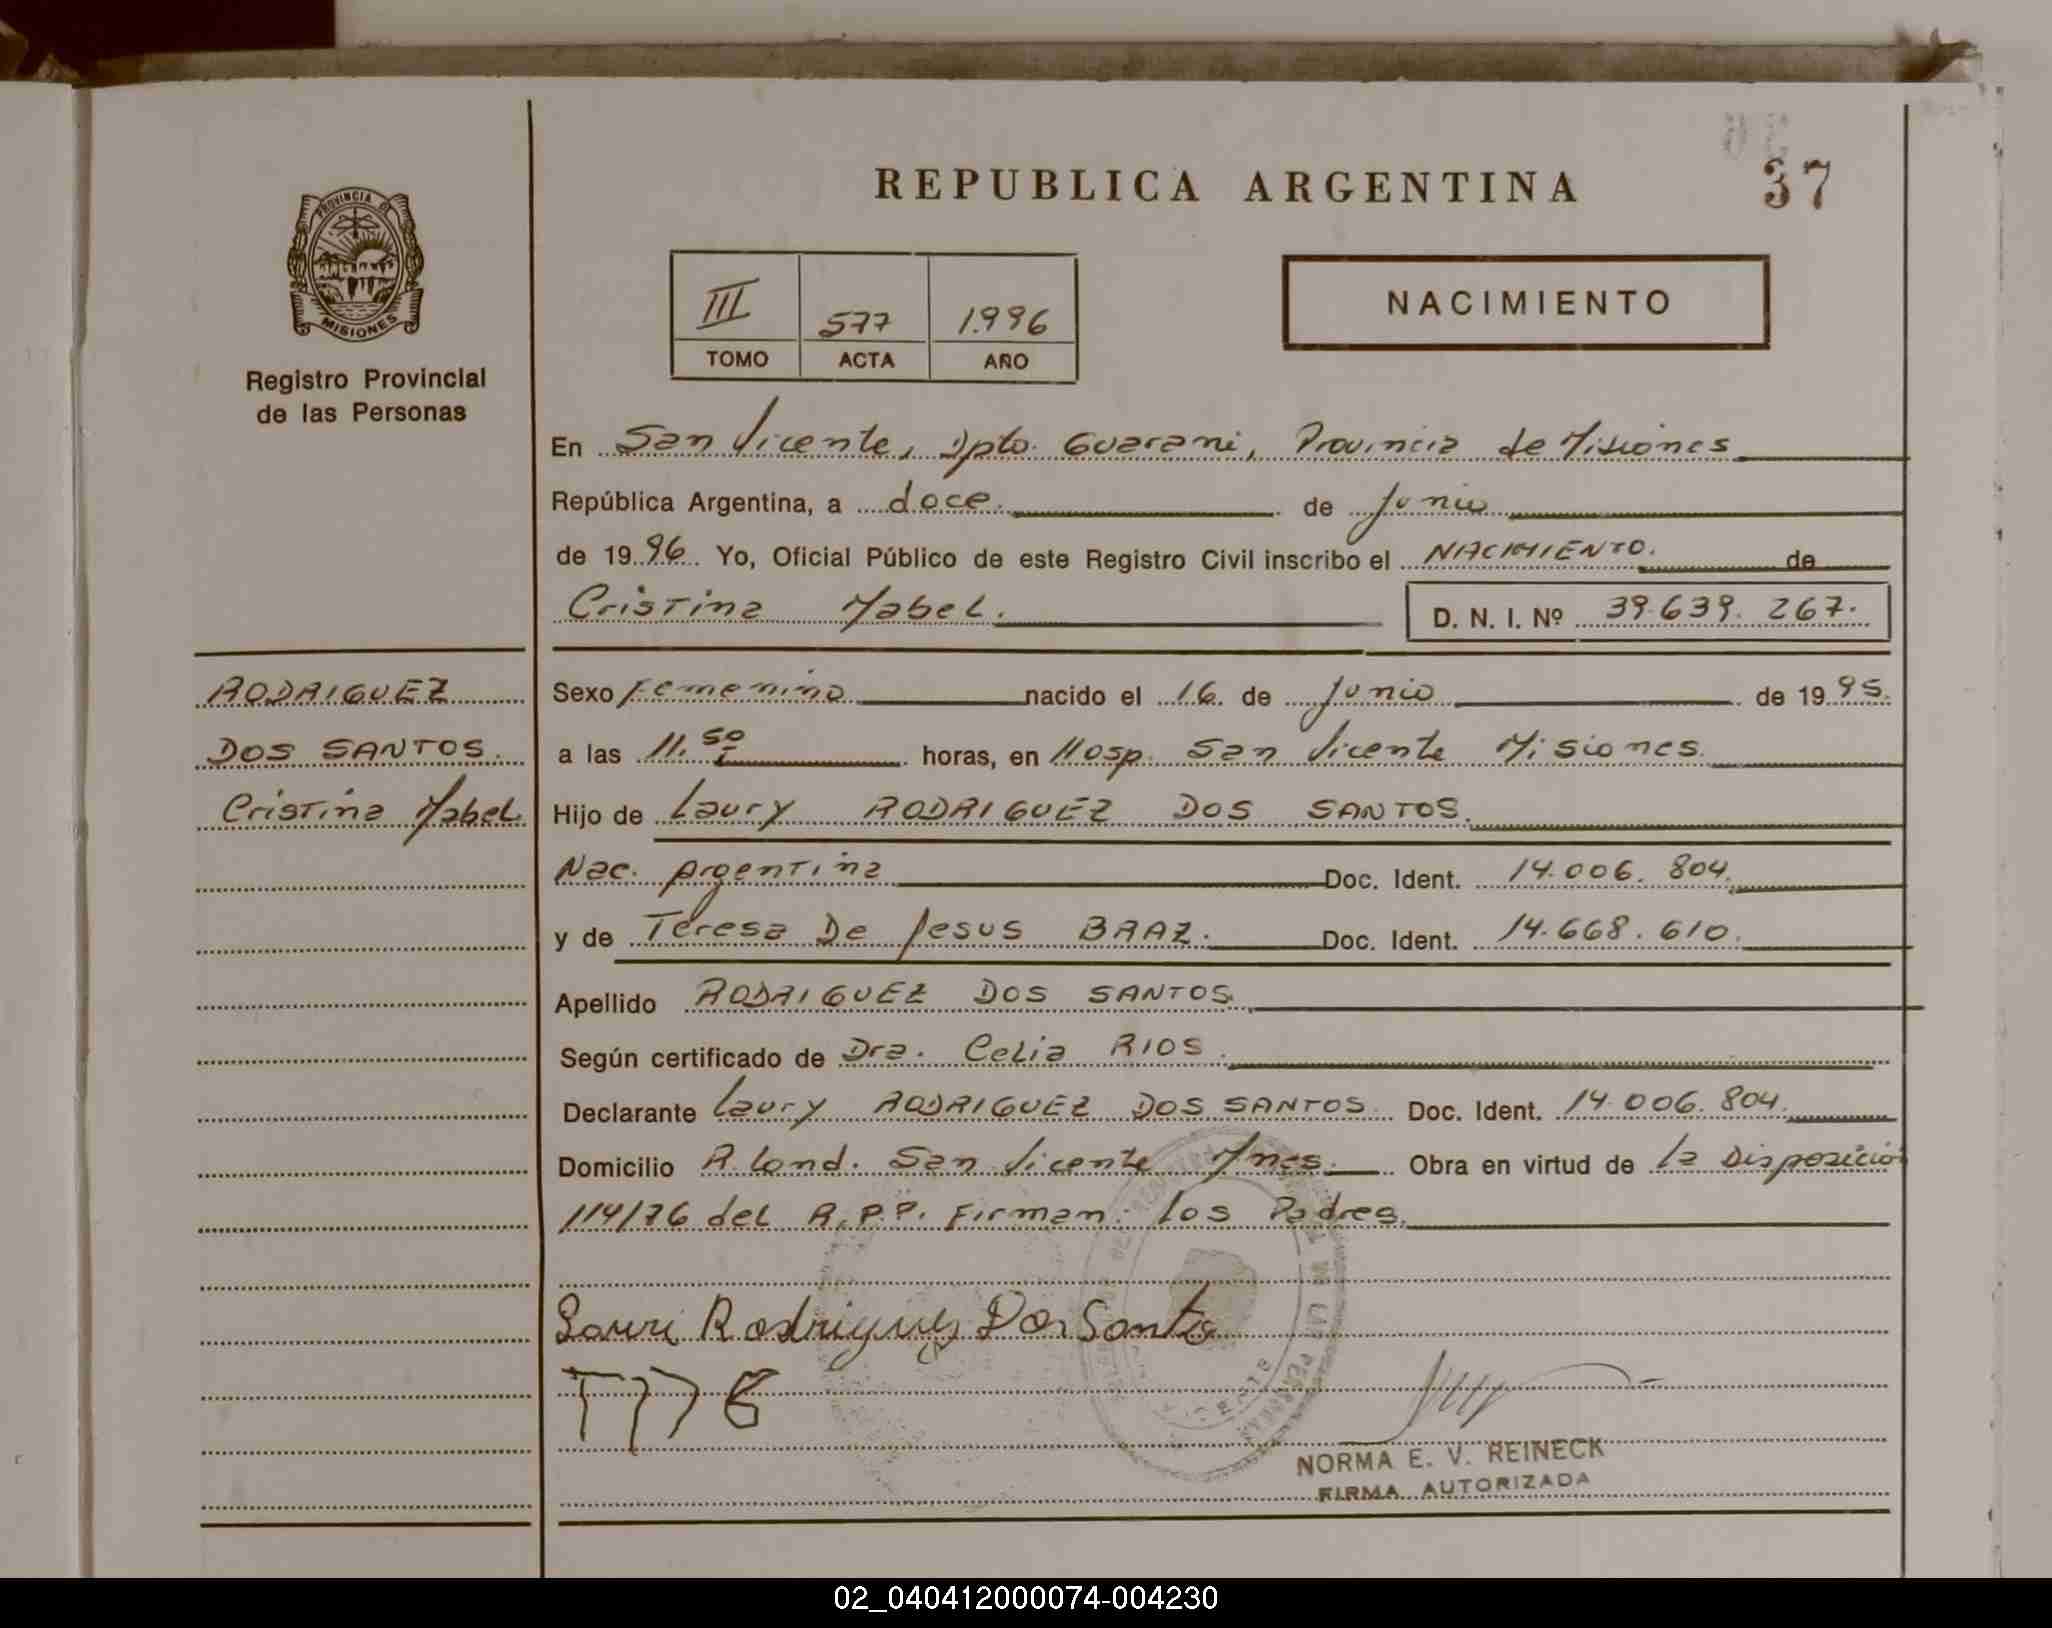 37
REPUBLICA ARGENTINA
PROVINCIA DE
MISIONES
Registro Provincial
de las Personas
III 577 1.996
TOMO ACTA AÑO
NACIMIENTO
En San Vicente, Dpto. Guarani, Provincia de Misiones
República Argentina, a doce. de Junio
de 1996 Yo, Oficial Público de este Registro Civil inscribo el NACIMIENTO. de
Cristina Mabel. D. N. I. Nº 39.639.267.
RODRIGUEZ
DOS SANTOS.
Cristina Mabel
Sexo Femenino nacido el 16 de Junio de 1995.
a las 11.50 horas, en Hosp. San Vicente Misiones.
Hijo de Laury RODRIGUEZ DOS SANTOS.
Nac. Argentina Doc. Ident. 14.006.804.
y de Teresa De Jesus BRAZ. Doc. Ident. 14.668.610.
Apellido RODRIGUEZ DOS SANTOS.
Según certificado de Dra. Celia RIOS.
Declarante Laury RODRIGUEZ DOS SANTOS. Doc. Ident. 14.006.804.
Domicilio San Vicente Mnes. Obra en virtud de la Disposición
114/76 del R.P.P. Firman: los Padres.
Lauri Rodrigues Dos Santo
NORMA E. V. REINECK
FIRMA AUTORIZADA
02_040412000074-004230